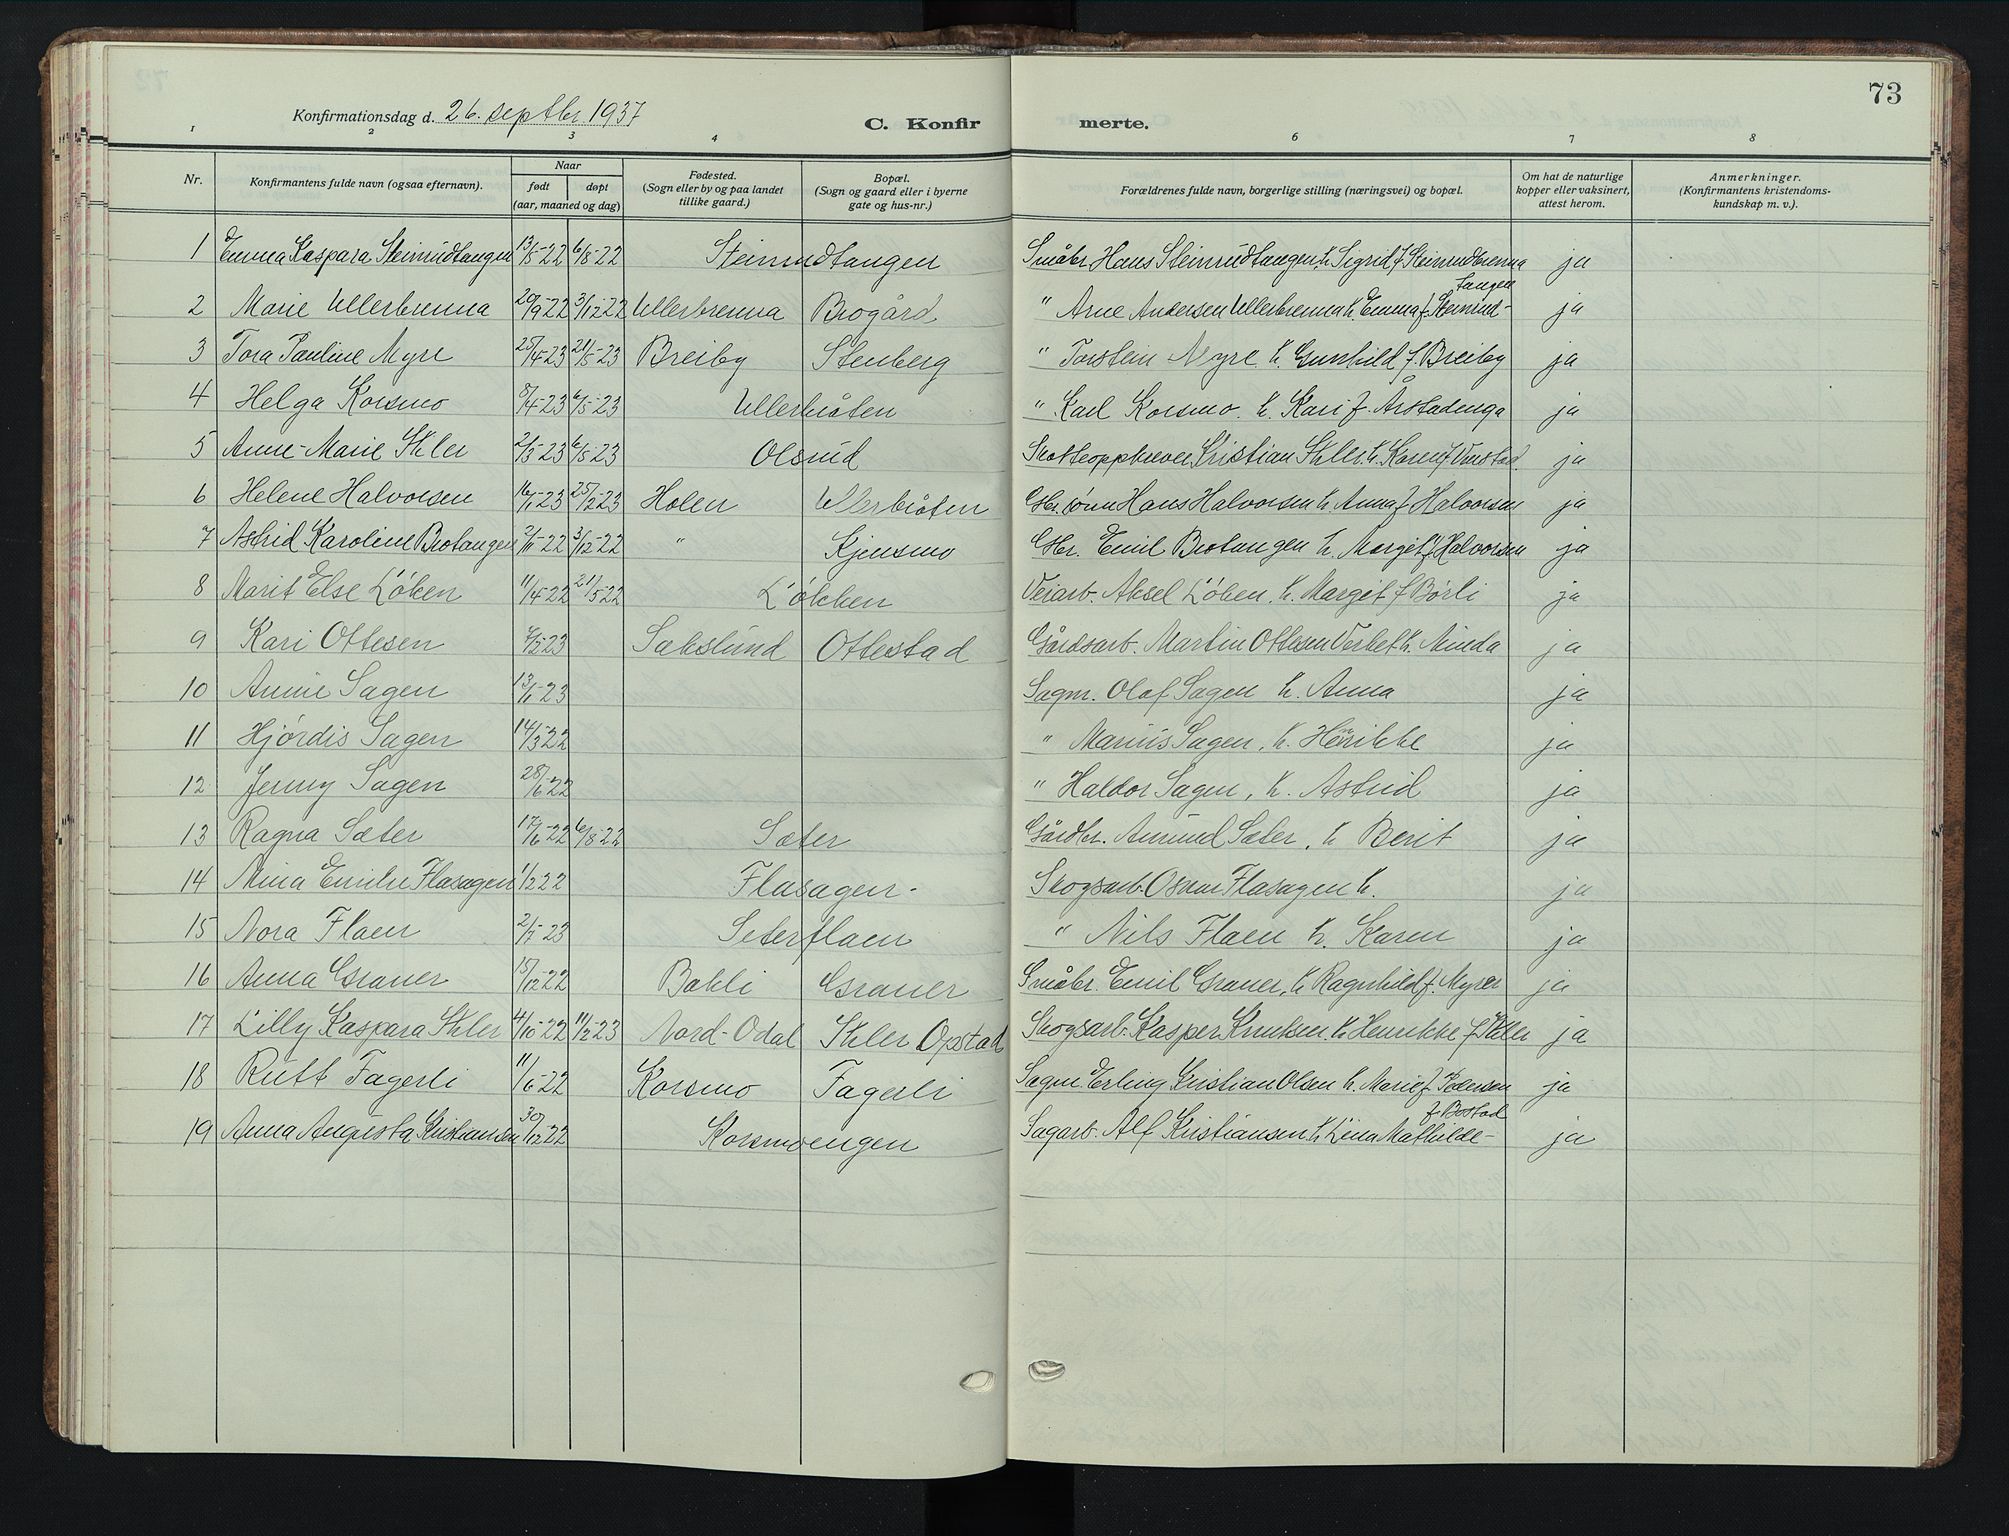 73
Konfirmationsdag d. 26. septbr. 1937
C. Konfir merte.
1 2 3 4 6 7 8
Nr. Konfirmantens fulde navn (ogsaa efternavn). Naar født døpt (aar, maaned og dag) Fødested. (Sogn eller by og paa landet tillike gaard.) Bopæl. (Sogn og gaard eller i byerne gate og hus-nr.) Forældrenes fulde navn, borgerlige stilling (næringsvei) og bopæl. Om hat de naturlige kopper eller vaksinert, attest herom. Anmerkninger. (Konfirmantens kristendoms-kundskap m. v.).
1 Emma Kaspara Steinrudtangen 13/5-22 6/8-22 Steinrudtangen Småbr. Hans Steinrudtangen h. Sigrid f. Steinrudbrenna ja
2 Marie Ullerbrenna 20/9-22 3/12-22 Ullerbrenna Brogård " Arne Andersen Ullerbrenna h. Emma f. Steinrud-tangen ja
3 Tora Pauline Myre 25/4-23 21/5-23 Breiby Stenberg " Torstein Myre h. Gunhild f. Breiby ja
4 Helga Korsmo 8/4-23 6/5-23 Ullerbråten " Karl Korsmo. h. Kari f. Årstadenga ja
5 Anne-Marie Skler 2/3 23 6/5-23 Olsrud Skatteoppkrever Kristian Skler h. Karen f. ja
6 Helene Halvorsen 16/1-23 25/2-23 Holen Ullerbråten Gbr. sønn Hans Halvorsen h. Anna f. Halvorsen ja
7 Astrid Karoline Brotangen 2/11-22 3/12-22 " Kjensmo Gbr. Emil Brotangen h. Margit f. Halvorsen ja
8 Marit Else Løken 11/4-22 21/5-22 Løkken Veiarb. Aksel Løken. h. Margit f. Børli ja
9 Kari Ottesen 23 Sakslund Ottestad Gårdsarb. Martin Ottesen Verket h. Minda ja
10 Annie Sagen 13/1-23 Sagm. Olaf Sagen h. Anna ja
11 Hjørdis Sagen 14/3 22 " Marius Sagen, h. Henrikke ja
12 Jenny Sagen 28/6 22 " Haldor Sagen, h. Astrid ja
13 Ragna Sæter 17/6-22 6/8-22 Sæter Gårdbr. Amund Sæter, h Berit ja
14 Mina Emilie Flasagen 1/2 22 Flasagen- Skogsarb. Osvar Flasagen h. ja
15 Nora Flaen 23 Seterflaen " Nils Flaen h. Karen ja
16 Anna Graner 15/12-22 Bakli Graner Småbr. Emil Graner, h Ragnhild f. Myrer ja
17 Lilly Kaspara Skler 4/10-22 11/2-23 Nord-Odal Skler Opstad Skogsarb. Kasper Knudsen h Henrikke f. Skler ja
18 Rutt Fagerli 11/6-22 Korsmo Fagerli Sagm. Erling Kristian Olsen h. Marie f. Pedersen ja
19 Anna Augusta Kristiansen 30/12-22 Korsmoengen Sagarb. Alf Kristiansen h Lina Mathilde- f. Bostad ja